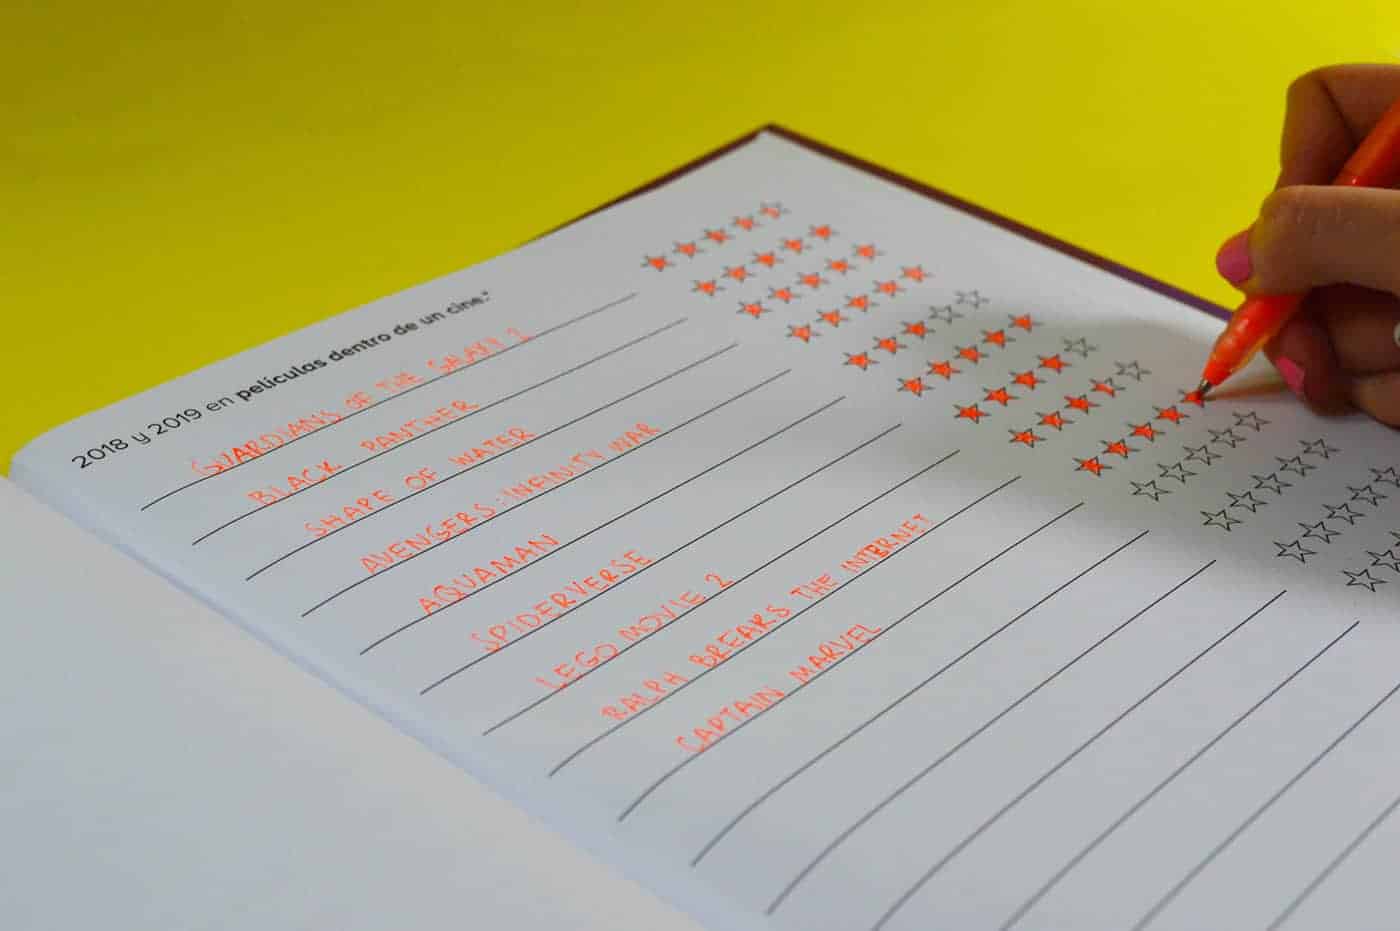 2018 y 2019 en películas dentro de un cine:*
GUARDIANS OF THE GALAXY 2
BLACK PANTHER
SHAPE OF WATER
AVENGERS: INFINITY WAR
AQUAMAN
SPIDERVERSE
LEGO MOVIE 2
RALPH BREAKS THE INTERNET
CAPTAIN MARVEL